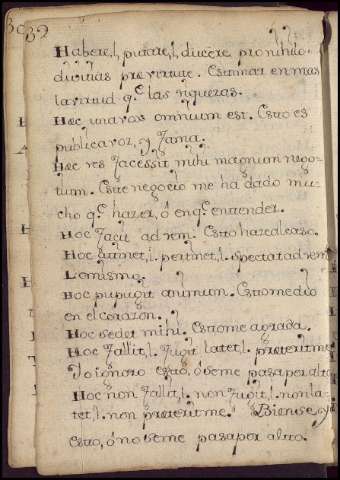 Habere, l, putare, l, ducere pro nihilo
divitias præ virtute. Estimar en mas
la virtud q.e las riquezas.
Hæc una vox omnium est. Esto es
publica voz, y fama.
Hæc res facessit mihi magnum nego-
tium. Este negocio me ha dado mu-
cho q.e hazer, ó en q.e entender.
Hoc facit ad rem. Esto haze al caso.
Hoc attinet, l. pertinet, l. spectat ad rem
Lo mismo.
Hoc pupugit animum. Esto me dio
en el corazon.
Hoc sedet mihi. Esto me agrada.
Hoc fallit, l. fugit, latet, l. præterit me
Yo ignoro esto, ó se me pasa por alto
Hoc non fallit, l. non fugit, l. non la-
tet, l. non præterit me. Bien se yo
esto, ó no se me pasa por alto.